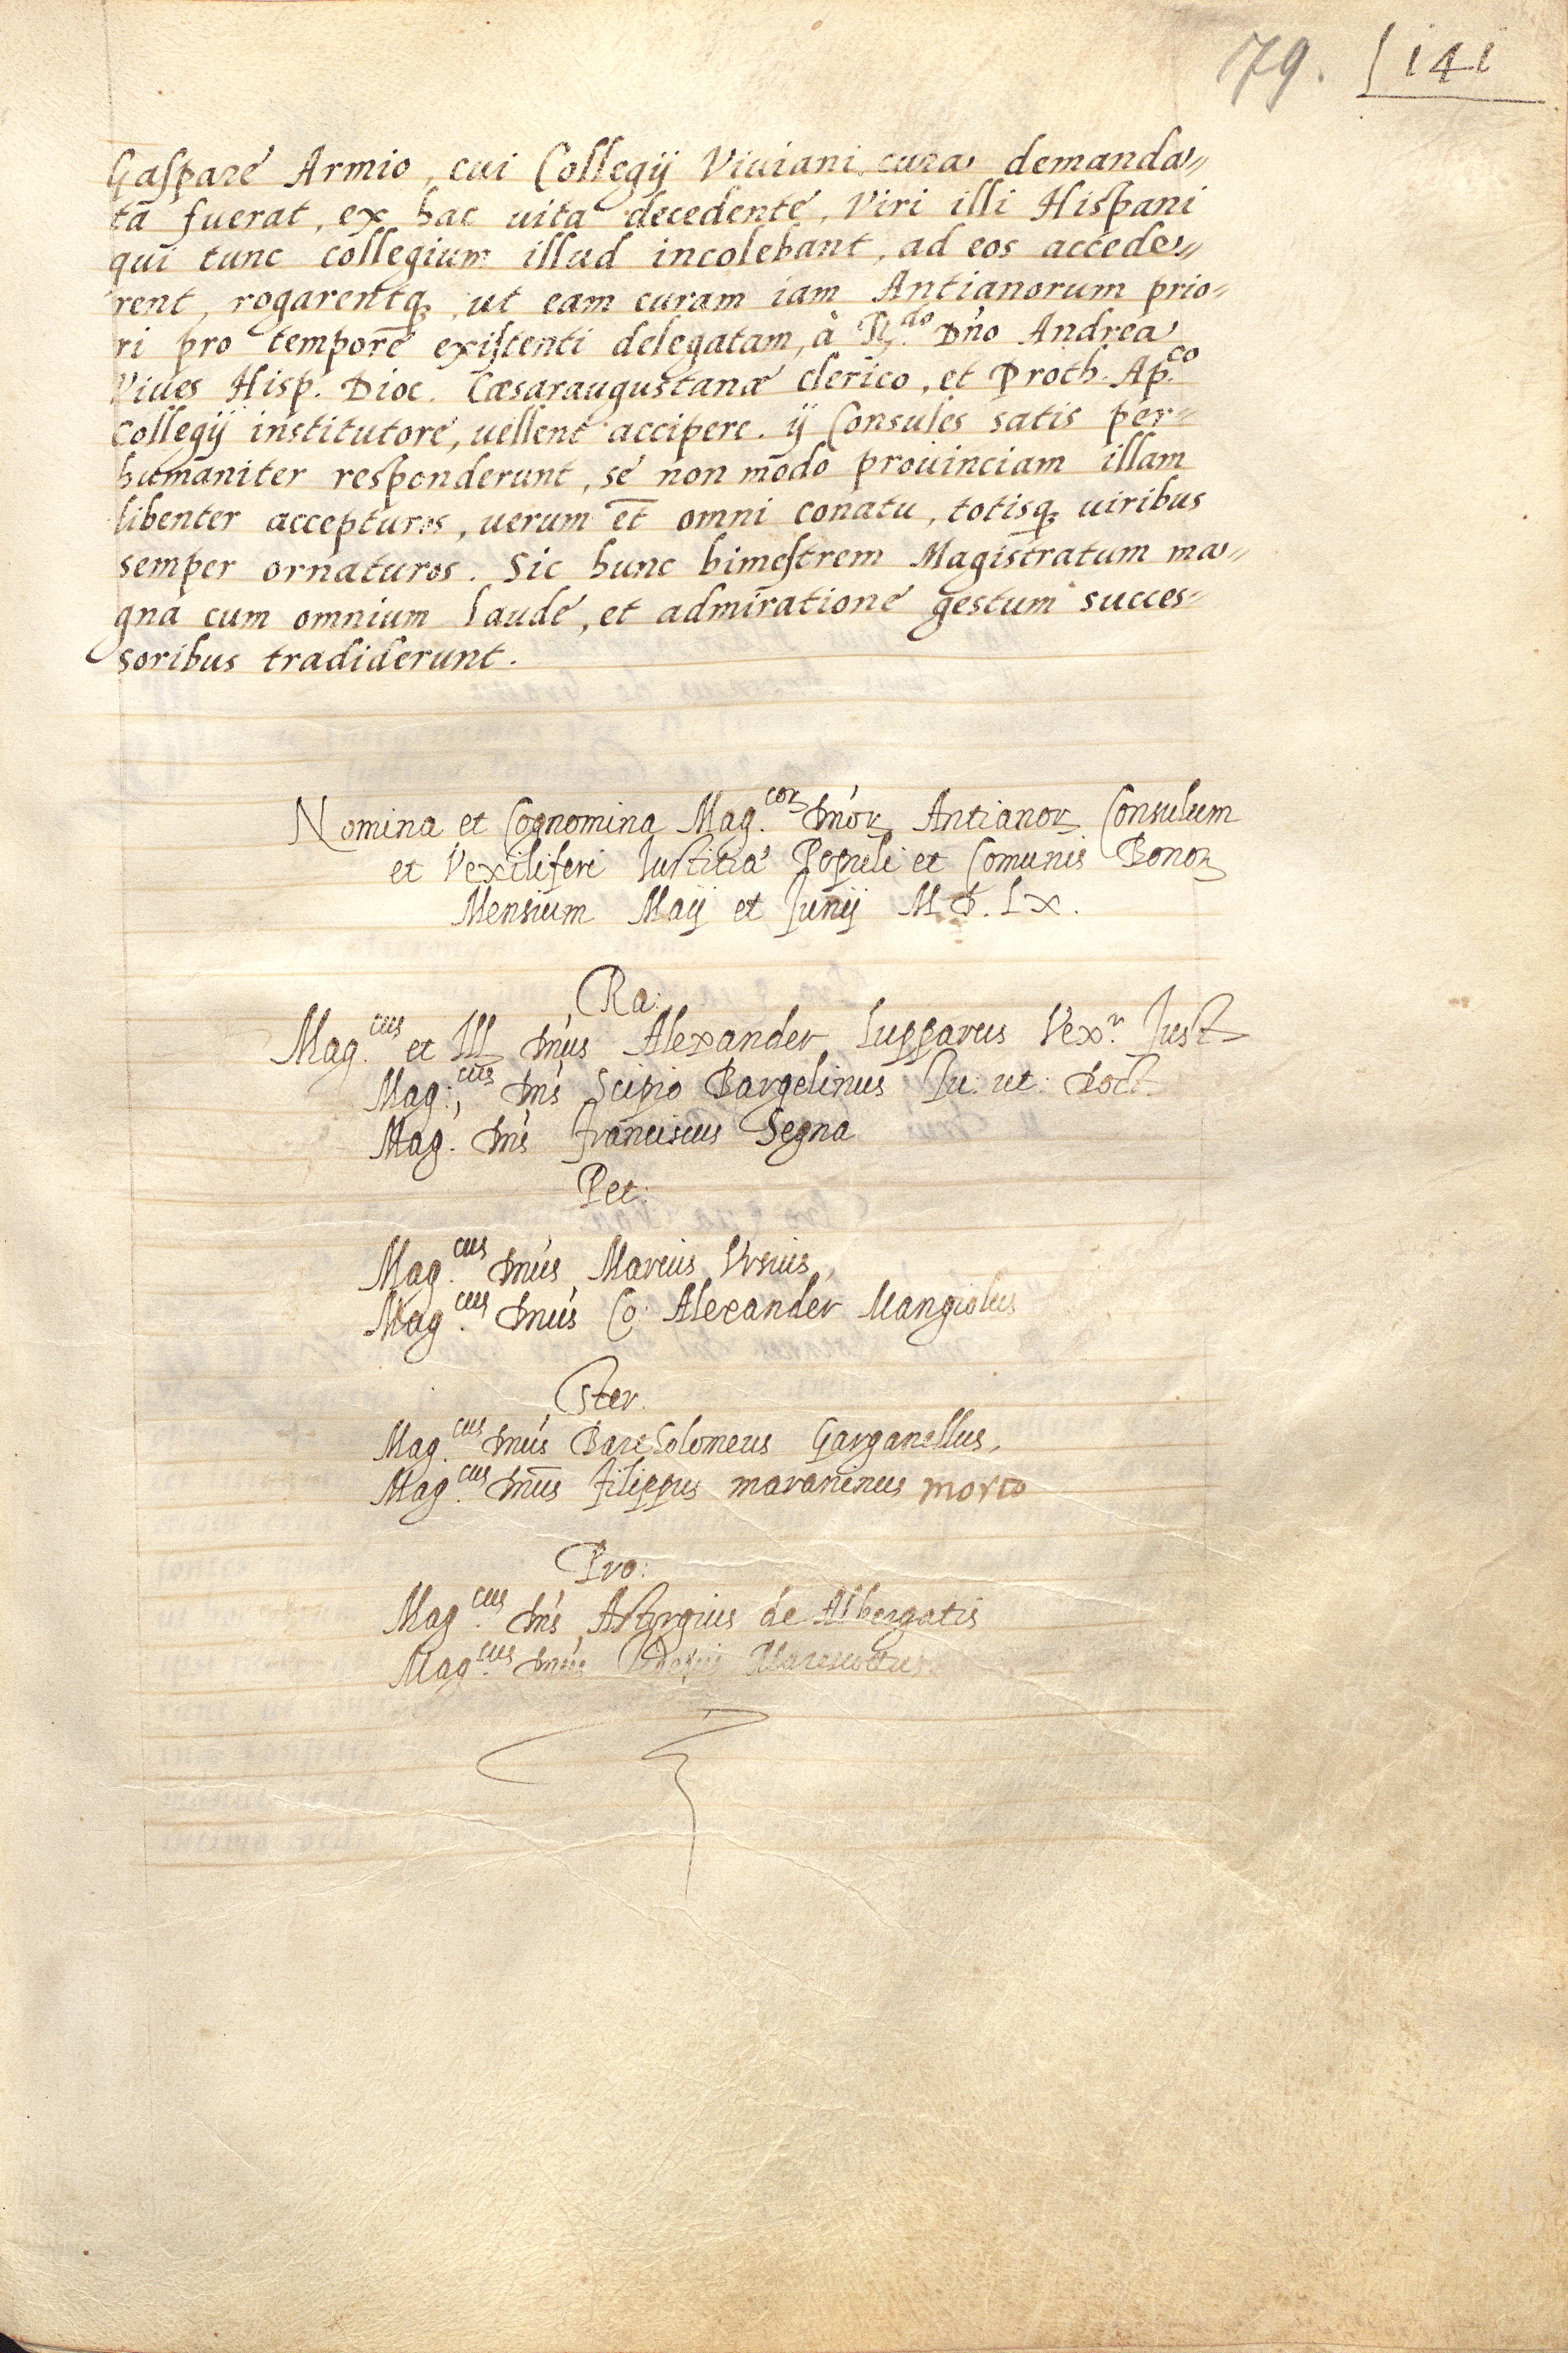 79. 141
Gaspare Armio, cui Collegij Viuiani cura demanda=
ta fuerat, ex hac uita decedente, Viri illi Hispani
qui tunc collegium illud incolebant, ad eos accede=
rent, rogarentq; ut eam curam iam Antianorum prio=
ri pro tempore existenti delegatam, à R.do Dño Andrea
Viues Hisp. Dioc. Cæsaraugustanæ clerico, et Proth. Ap.co
Collegij institutore, uellent accipere. ij Consules satis per=
humaniter responderunt, se non modo prouinciam illam
libenter accepturos, uerum et̄ omni conatu, totisq; uiribus
semper ornaturos. Sic hunc bimestrem Magistratum ma=
gna cum omnium laude, et admiratione gestum succes=
soribus tradiderunt.
Nomina et Cognomina Mag.corꝝ Dñorꝝ Antianorꝝ Consulum
et Vexiliferi Iustitiæ Populi et Comunis Bonoꝝ
Mensium Maij et Junij M.D.LX.
Ra:
Mag.cus et Ill. Dñus Alexander Lupparus Vex.r Just.
Mag.cus Dñs Scipio Bargelinus Iu: ut: Doct.
Mag. Dñs Franciscus Segna
Pet:
Mag.cus Dñus Marcius Ursius,
Mag.cus Dñus Co: Alexander Mangiolus
Ster.
Mag.cus Dñus Bartholomeus Garganellus,
Mag.cus Dñus Filippus maraninus morto
Pro:
Mag.cus Dñs Astorgius de Albergatis
Mag.cus Dñus Marescottus